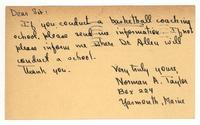 Dear Sir:
If you conduct a basketball coaching
school, please send me information. If not
please inform me where Dr Allen will
conduct a school.
Thank you.
Very truly yours,
Norman A. Taylor
Box 224
Yarmouth, Maine